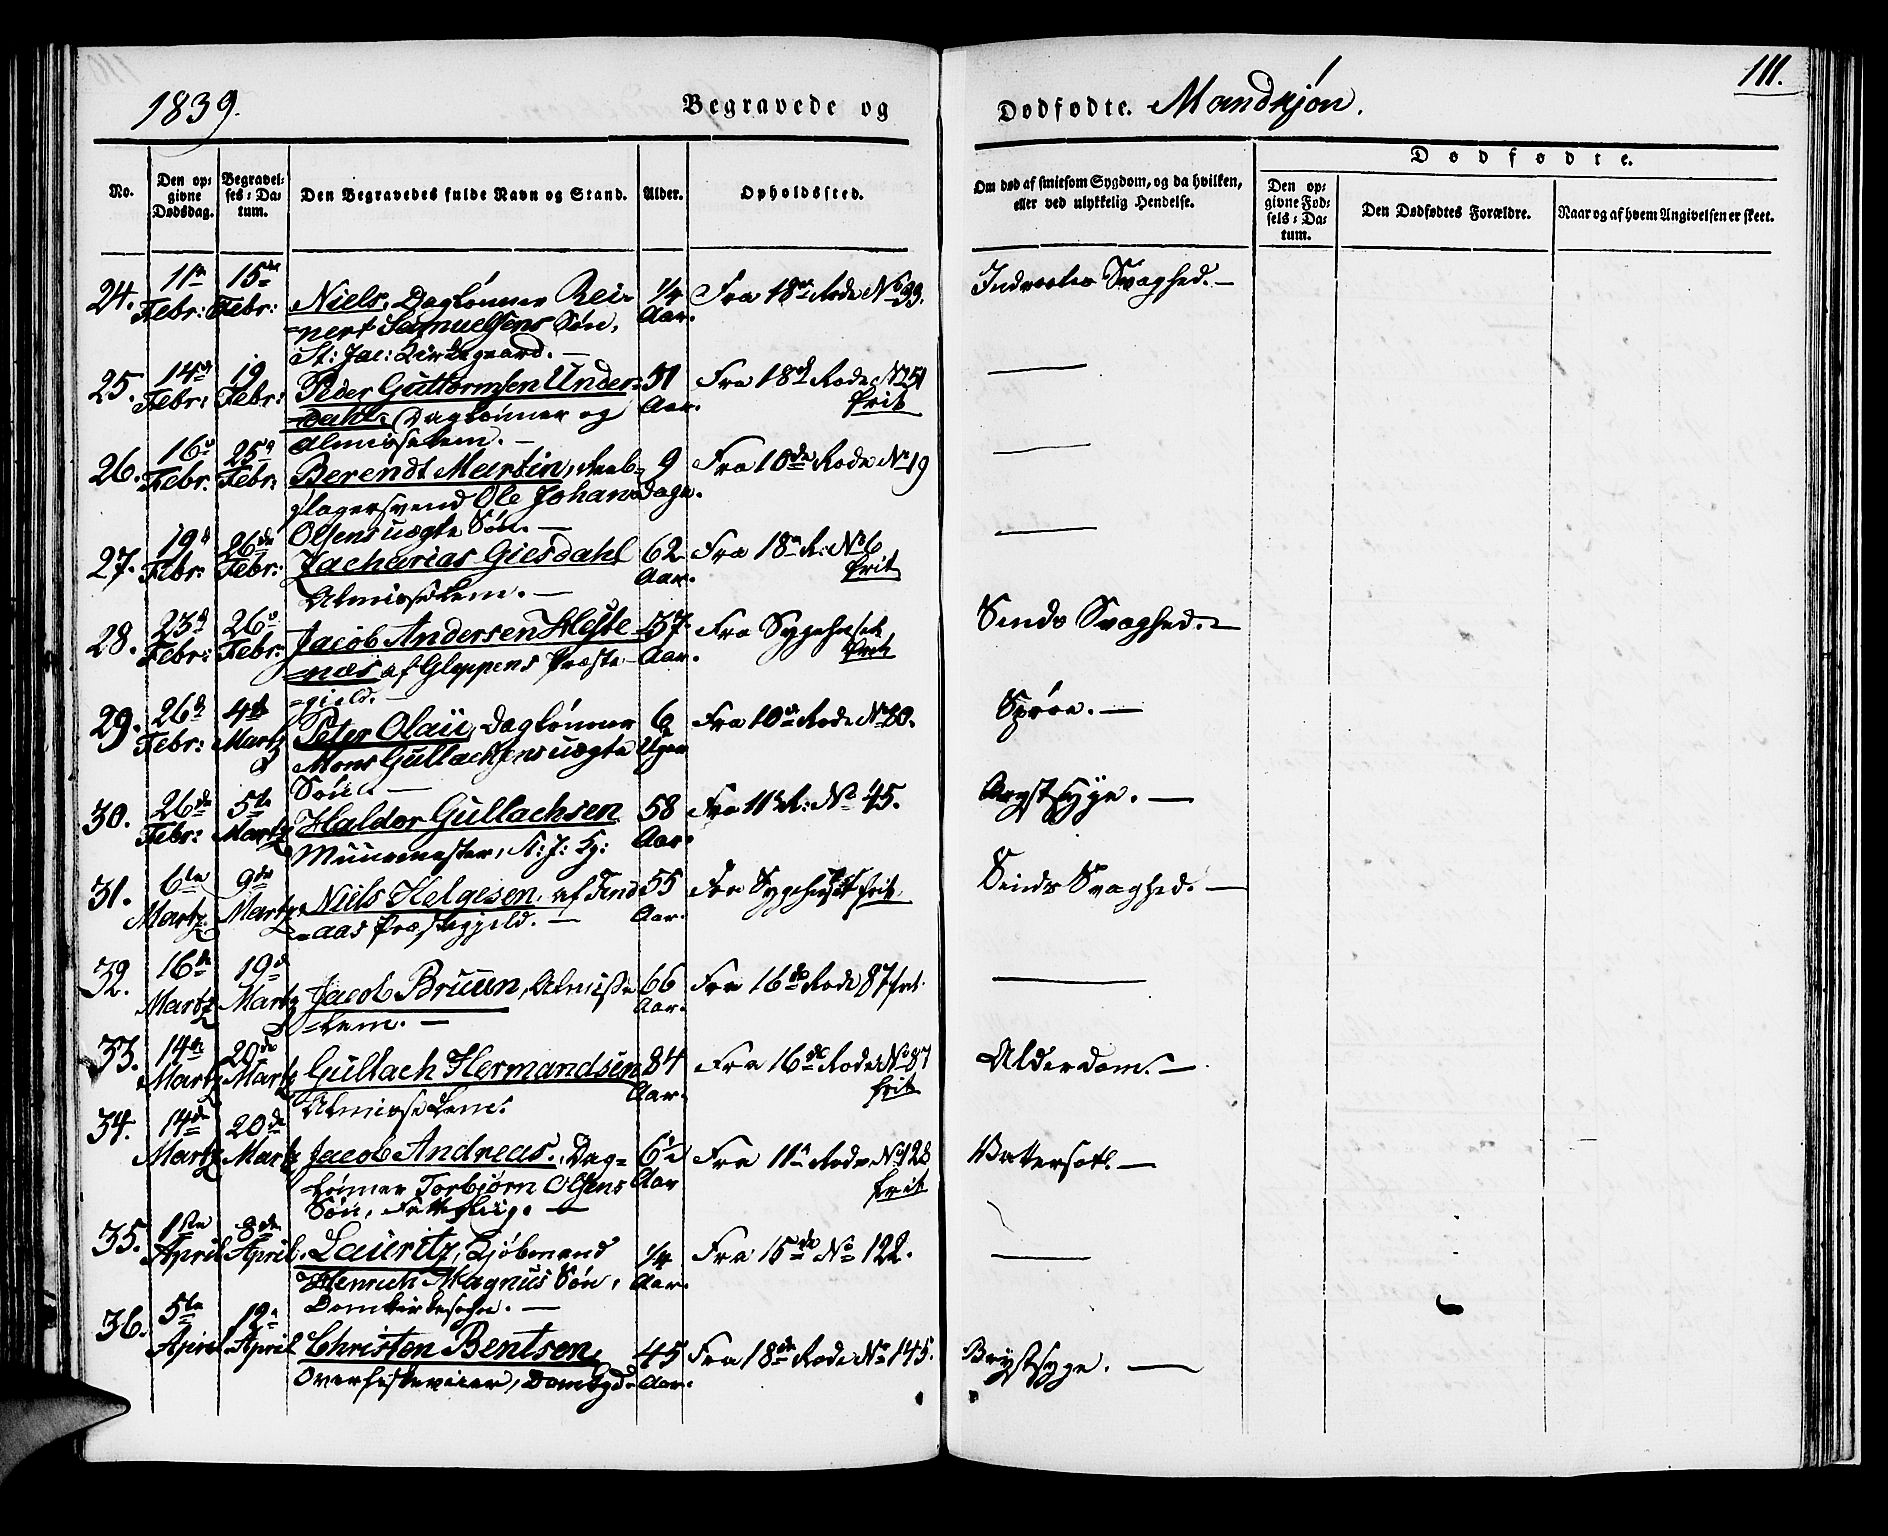 1839.
Begravede og
Dødfødte. Mandkjøn.
111.
No.
Den op-
givne
Dødsdag.
Begravel-
ses-Da-
tum.
Den Begravedes fulde Navn og Stand.
Alder.
Opholdssted.
Om død af smitsom Sygdom, og da hvilken,
eller ved ulykkelig Hendelse.
Dødfødte.
Den op-
givne Fød-
sels-Da-
tum.
Den Dødfødtes Forældre.
Naar og af hvem Angivelsen er skeet.
24. 11te Febr: 15de Febr: Niels, Dagløнner Rei-
=nert Samuelsens Søn,
St: Jac: Kirkegaard. —
1/4 Aar. Fra 18de Rode No 99. Indvortes Svaghed. —
25. 14de Febr: 19 Febr: Peder Guttormsen Under-
=dahl, Daglønner og
Almisselem. —
51 Aar. Fra 18de Rode No 51 frit —
26. 16de Febr. 25de Febr: Berendt Martin, Reeb-
slagersvend Ole Johan
Olsens uægte Søn. —
9 Dage. Fra 10de Rode No 19 —
27. 19de Febr: 26de Febr: Zacharias Giesdahl
Almisselem. —
62 Aar. Fra 18de R: No 6. frit —
28. 23de Febr: 26de Febr: Jacob Andersen Heste-
=næs af Gloppens Præste-
=gield. —
57. Aar. Fra Sygehuset frit Sinds Svaghed. —
29. 26de Febr: 4de Martz Peter Olaü, Dagløнner
Mons Gullachsens uægte
Søn. —
6 Uger Fra 10de Rode No 80. Sprøe. —
30. 26de Febr: 5te Martz Haldor Gullachsen
Muurmester, St: J: Kg:
58 Aar. Fra 11te R: No 45. Brystsyge. —
31. 6te Martz 9de Martz Niels Helgesen, af Find-
=aas Præstegjeld. —
55 Aar. Fra Sygehuset frit. Sinds Svaghed. —
32. 16de Martz 19de Martz Jacob Bruun, Almisse
=lem. —
66 Aar. Fra 16de Rode 87 frit. —
33. 14de Martz 20de Martz Gullach Hermandsen
Almisselem.
84 Aar. Fra 16de Rode No 87 frit Alderdom. —
34. 14de Martz 20de Martz Jacob Andreas, Dag=
=lønner Torbjørn Olsens
Søn, —
6 1/2 Aar Fra 11te Rode No 128 frit Vatersot. —
35. 1ste April 8de April. Lauritz, Kjøbmand
Henrich Magnus Søn,
Domkirkesogn. —
1/4 Aar. Fra 15de No 122. —
36. 5te April 12te April Christen Bentsen,
Domkgd.
45 Aar. Fra 18de Rode No 145. Brystsyge. —